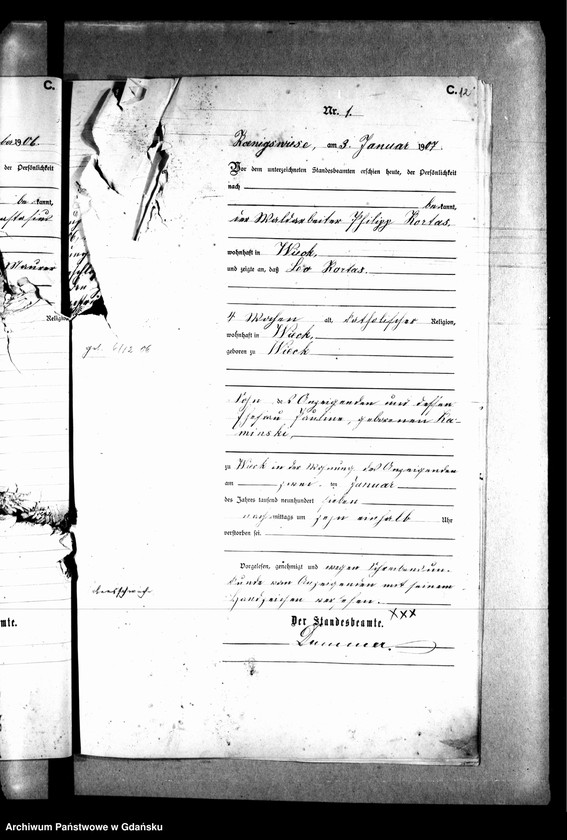 C.
1906.
der Persönlichkeit
be kannt,
Maurer
Religion
C. 12
Nr. 1.
Koenigswiese, am 3. Januar 1907.
Vor dem unterzeichneten Standesbeamten erschien heute, der Persönlichkeit
nach
be kannt,
der Waldarbeiter Philipp Kortas,
wohnhaft in Wieck,
und zeigte an, daß Leo Kortas.
4 Wochen alt, katholischer Religion,
wohnhaft in Wieck,
geboren zu Wieck
geb. 6/12 06
Sohn des Anzeigenden und dessen
Ehefrau Pauline, geborenen Ka-
minski,
zu Wieck in der Wohnung des Anzeigenden
am zwei ten Januar
des Jahres tausend neunhundert sieben
nach mittags um zehn einhalb Uhr
verstorben sei.
Vorgelesen, genehmigt und wegen Schreibensun-
kunde vom Anzeigenden mit seinem
Handzeichen versehen.
XXX
Der Standesbeamte.
Dammer.
mte.
Archiwum Państwowe w Gdańsku